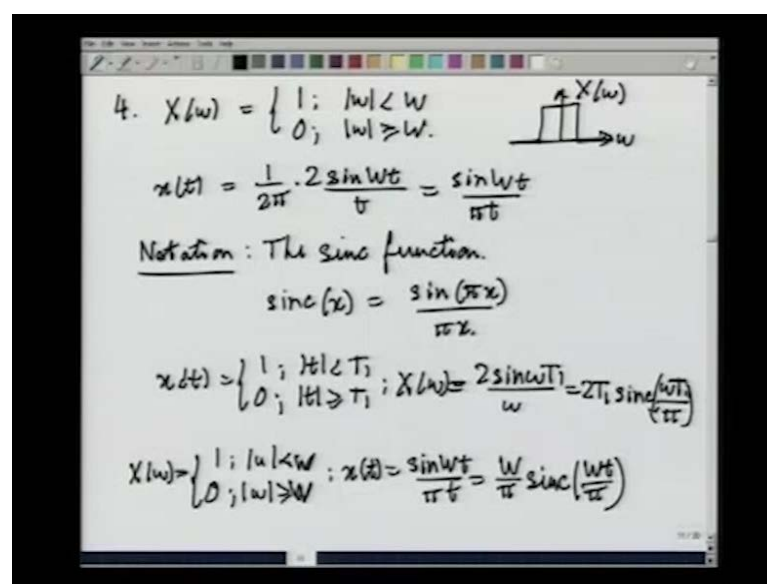 4. X(ω) = { 1 ; |ω| < W
0 ; |ω| ≥ W.
X(ω)
ω
x(t) = 1/2π · 2 sin Wt / t = sin Wt / πt
Notation : The sinc function.
sinc(x) = sin(πx) / πx.
x(t) = { 1 ; |t| < T₁
0 ; |t| ≥ T₁ ; X(ω) = 2 sin ωT₁ / ω = 2T₁ sinc(ωT₁/π)
X(ω) = { 1 ; |ω| < W
0 ; |ω| ≥ W : x(t) = sin Wt / πt = W/π sinc(Wt/π)